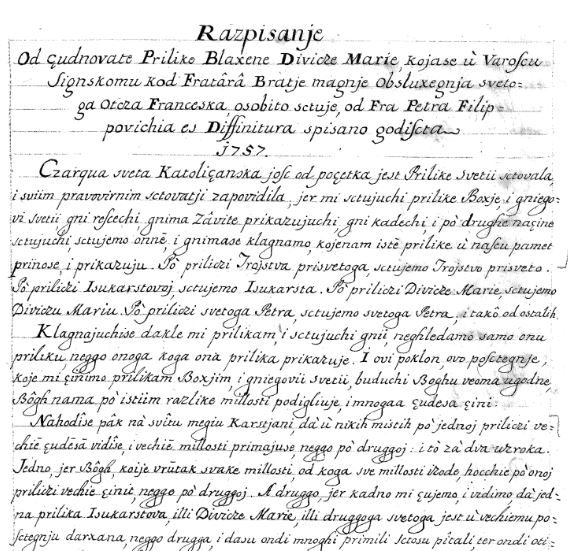 Razpisanje
Od çudnovate Prilike Blaxene Divicze Marie, kojase ù Varoscu
Signskomu kod Fratârâ Bratje magnje Obsluxegnja sveto-
ga Otcza Franceska osobito sctuje, od Fra Petra Filip-
povichia es Diffinitura spisano godiscta
1757.
Czarqua sveta Katoliçanska josc od poçetka jest Prilike Svetiì sctovala,
i sviim pravovirnim sctovatji zapovidila, jer mi sctujuchi prilike Boxje, i gniego-
vi svetiì gni rescechi, gnima Zâvite prikazujuchi, gni kadechi, i pò drughe naçine
sctujuchi, sctujemo onnê, i gnimase klagnamo, kojenam istê prilike ù nascu pamet
prinose, i prikazuju. Pò priliczi Trojstva prisvetoga, sctujemo Trojstvo prisveto.
Pò priliczi Isukarstovoj sctujemo Isukarsta. Pò priliczi Divicze Marie, sctujemo
Diviczu Mariu. Pò priliczi svetoga Petra, sctujemo svetoga Petra, i takô od ostalih.
Klagnajuchise dakle mi prilikam i sctujuchi gniì, neghledamo samo onu
priliku, neggo onoga koga ona prilika prikazuje. I ovi poklon, ovo posctegnje,
koje mi çinimo prilikam Boxjim, i gniegoviì svetiì, buduchi Boghu veoma ugodne,
Bôgh nama pò istiìm razlike milosti podigliuje, i mnogaa çudesa çini.
Nahodise pâk nà svitu megiu Karstjani, dà ù nikih mistih pò jednoj priliczi ve-
chiê çudêsâ vidise, i vechiê millosti primajuse, neggo pò druggoj: i tò zà dva uzroka.
Jedno, jer Bôgh, koije vrutak svake millosti, od koga sve millosti izode, hocchie pò onoj
priliczi vechie çinit, neggo pò druggoj. A druggo, jer kadno mi çujemo, i vidimo dà jed-
na prilika Isukarstova, illi Divicze Marie, illi druggoga svetoga jest ù vechiemu po-
sctegnju darxana, neggo drugga, i dasu ondi mnoghi primili sctosu pitali, ter ondi oti-